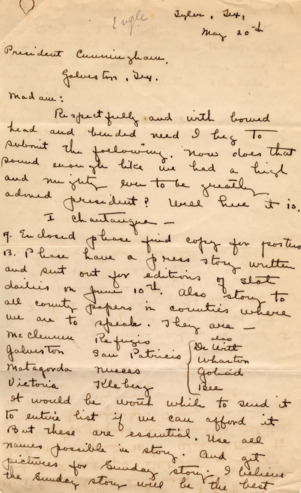 Engle
Tyler, Tex,
May 20th
President Cunningham.
Galveston, Tex.
Madam:
Respectfully and with bowed
head and bended need I beg to
submit the following. Now does that
sound enough like we had a high
and mighty even to be greatly
adored president? Well here it is.
I Chautauqua —
A. Enclosed please find copy for posters
B. Please have a press story written
and sent out for editions of stat
dailies on June 10th. Also story to
all county papers in counties where
we are to speak. They are —
McClennen Refugio also
Galveston San Patricio De Witt
Matagorda Nueces Wharton
Victoria Kleberg Goliad
Bee
It would be worth while to send it
to entire list if we can afford it
But these are essential. Use all
names possible in story. And get
pictures for Sunday story. I believe
the Sunday story will be the best